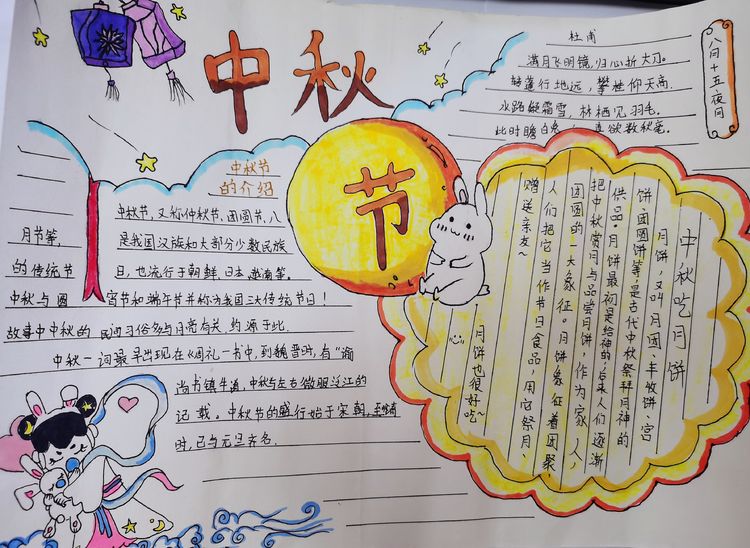 中秋
节
八月十五夜月
杜甫
满月飞明镜,归心折大刀。
转蓬行地远,攀桂仰天高.
水路疑霜雪,林栖见羽毛.
此时瞻白兔 直欲数秋毫.
中秋节
的介绍
中秋节,又称仲秋节、团圆节、八
月节等,是我国汉族和大部分少数民族
的传统节日,也流行于朝鲜、日本、越南等。
中秋与 宫节和端午节并称为我国三大传统节日!
故事中中秋的 民间习俗多与月亮有关,约源于此.
中秋一词最早出现在《周礼一书中,到魏晋时,有“
尚书镇牛渚,中秋 与左右微服泛江的
记载。中秋节的盛行始于宋朝,至
时,已与元旦齐名.
中秋吃月饼
月饼,又叫月团、丰收饼、宫
饼、团圆饼等,是古代中秋祭拜月神的
供品.月饼最初是给神的,后来人们逐渐
把中秋赏月与品尝月饼,作为家人,
团圆的一大象征。月饼象征着团聚
人们把它当作节日食品,用它祭月、
赠送亲友~
月饼也很好吃~